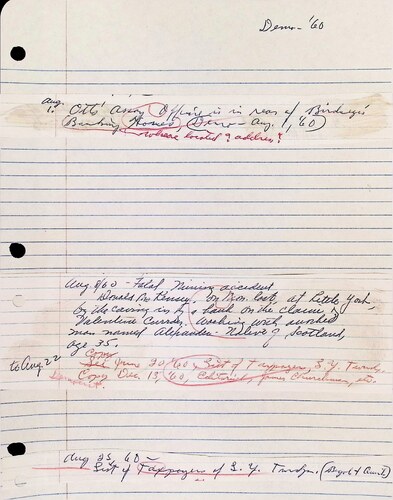 Demo - '60
Aug. 1. Otts' Assay Office is in rear of Birdseye's
Banking House, (Demo - Aug. 1, '60)
where located? address?
Aug 8/60 - Fatal Mining accident
Donald McKenny, on Mon. last, at Little York,
by the caving in of a bank on the claim of
Valentine . Working with
man named Alexander. Native of Scotland,
age 35.
to Aug 22
Copy
See June 30/60 - List of Taxpayers, S. Y. Twnshp.
Copy Dec. 13, '60, Editorial, James Churchman, etc.
Aug 25, 60 -
List of Taxpayers of S. Y. Twnshp.